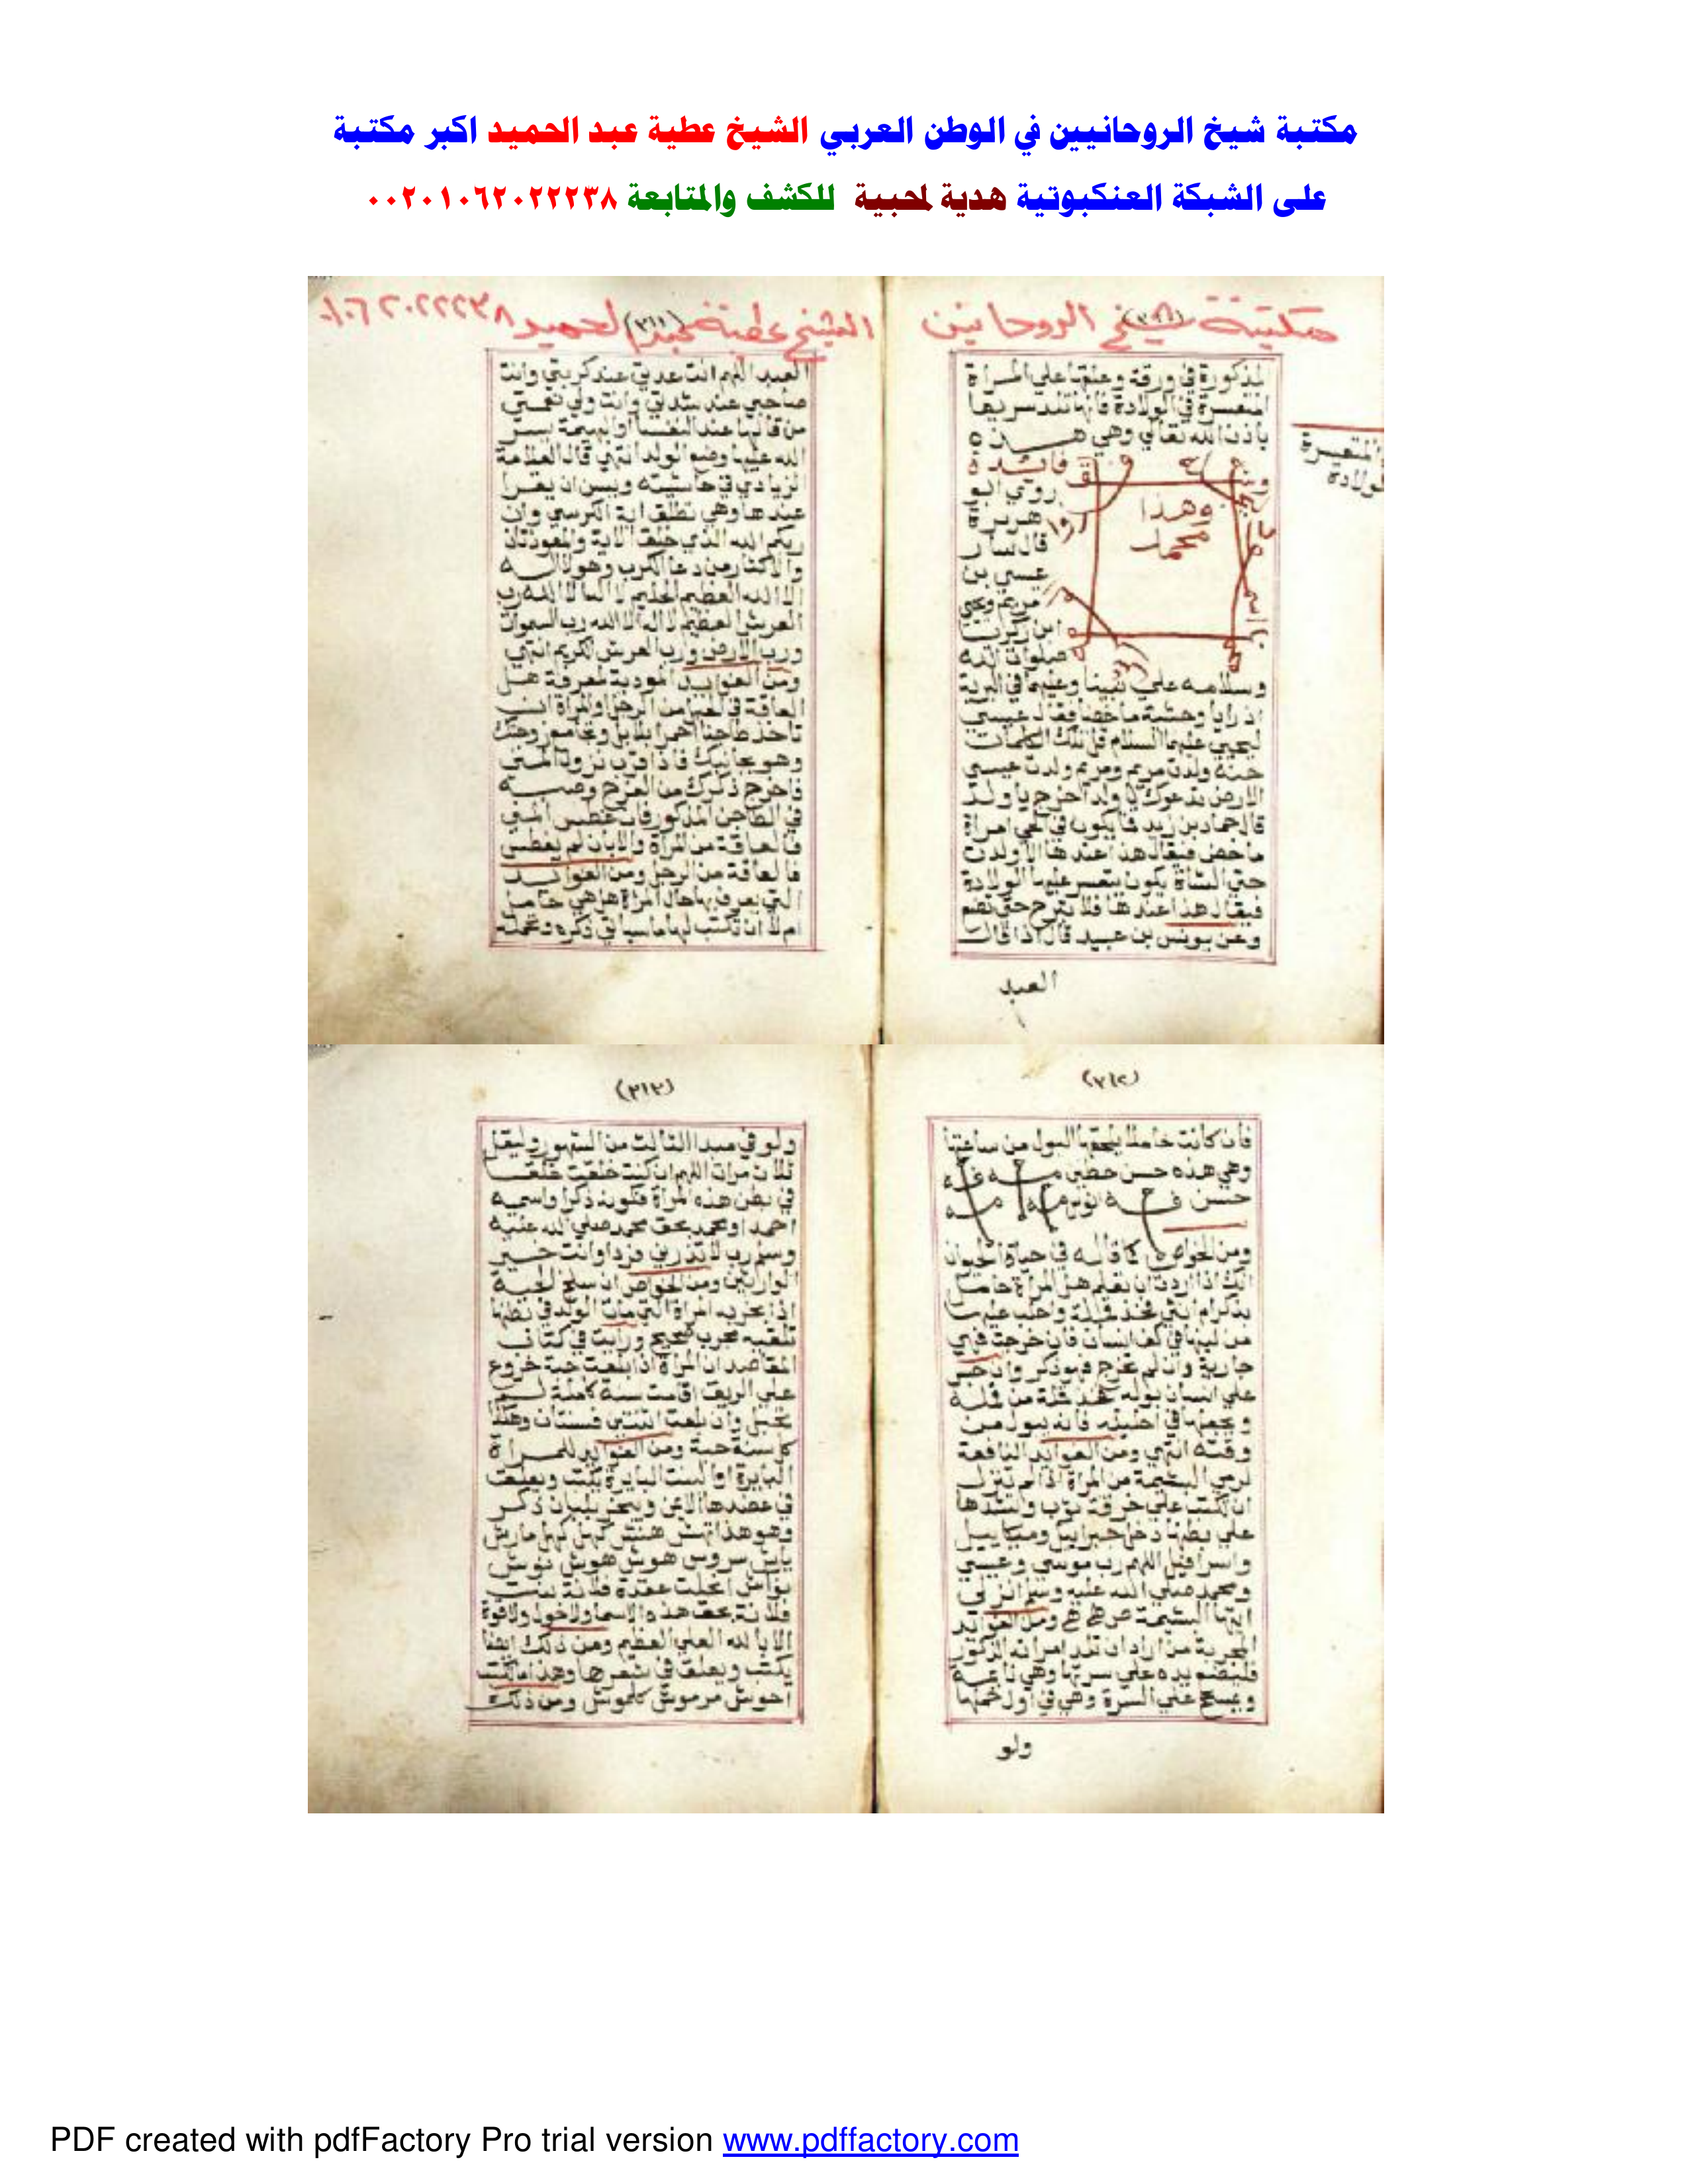 مكتبة شيخ الروحانيين في الوطن العربي الشيخ عطية عبد الحميد اكبر مكتبة
على الشبكة العنكبوتية هدية لمحبية للكشف والمتابعة ٠٠٢٠١٠٦٢٠٢٢٢٣٨
مكتبة شيخ الروحانين
المذكورة في ورقة وعلقها على المراة
المتعسرة في الولادة فانها تلد سريعا
باذن الله تعالي وهي هذه
المتعسرة
ولادة
فائدة
روي ابو
هريرة
قال سار
عيسي بن
مريم ويحيي
ابن زكريا
صلوات الله
وهذا
محمد
وسلامه علي نبينا وعليهما في البرية
اذ رايا وحشية ماخضا فقال عيسي
ليحيي عليهما السلام قل تلك الكلمات
حنة ولدت مريم ومريم ولدت عيسي
الارض تدعوك يا ولد اخرج يا ولد
قال حماد بن زيد فما يكون في الحي امراة
ماخض فيقال هذا عندها الا ولدت
حتي الشاة يكون يتعسر عليها الولادة
فيقال هذا عندها فلا تبرح حتي تضع
وعن يونس بن عبيد قال اذا قال
العبد
الشيخ عطية عبد الحميد ٠١٠٦٢٠٢٢٢٣٨
(٣١١)
العبد اللهم انت عدتي عند كربتي وانت
صاحبي عند شدتي وانت ولي نعمتي
من قالها عند النفسا او البهيمة يسر
الله عليها وضع الولد انتهي قال العلامة
الزيادي في حاشيته ويسن ان يقرا
عندها وهي تطلق اية الكرسي وان
ربكم الله الذي خلق الاية والمعوذتان
والاكثار من دعا الكرب وهو لا اله
الا الله العظيم الحليم لا اله الا الله رب
العرش العظيم لا اله الا الله رب السموات
ورب الارض ورب العرش الكريم انتهي
ومن الفوايد المودية لمعرفة هل
العاقة في الحبل من الرجل او المراة ان
تاخذ طاجنا احمرا بلا بل وتجامع زوجتك
وهو بجانبك فاذا قرب نزول المني
فاخرج ذكرك من الفرج وصبه
في الطاجن المذكور فان غطس المني
فالعاقة من المراة والا بان لم يغطس
فالعاقة من الرجل ومن الفوايد
التي يعرف بها حال المراة هل هي حامل
ام لا ان تكتب لها ما سياتي ذكره وتحمله
(٣١٢)
فان كانت حاملا يلحقها البول من ساعتها
وهي هذه
ومن الخواص ما قاله في حياة الحيوان
انك اذا اردت ان تعلم هل المراة حامل
بذكر ام انثي فخذ قملة واحلب عليها
من لبنها في كف انسان فان خرجت فهي
جارية وان لم تخرج فهو ذكر وان حبس
علي انسان بوله فخذ قملة من قمله
ويجعلها في احليله فانه يبول من
وقته انتهي ومن الفوايد النافعة
لرمي المشيمة من المراة اذا لم تنزل
ان تكتب علي خرقة ثوب وتشدها
علي بطنها دخل جبراييل وميكاييل
واسرافيل اللهم رب موسي وعيسي
ومحمد صلي الله عليه وسلم انزلي
ايتها المشيمة ومن الفوايد
المجربة من اراد ان تلد امراته الذكور
فليضع يده علي سرتها وهي نايمة
ويمسح علي السرة وهي في اول حملها
ولو
(٣١٣)
ولو في مبدا الثالث من الشهور وليقل
ثلاث مرات اللهم ان كنت خلقت خلقا
في بطن هذه المراة فكونه ذكرا واسميه
احمد او محمد بحق محمد صلي الله عليه
وسلم رب لا تذرني فردا وانت خير
الوارثين ومن الخواص ان سلخ الحية
اذا بخر به المراة التي مات الولد في بطنها
تلقيه مجرب صحيح ورايت في كتاب
المقاصد ان المراة اذا بلعت حبة خروع
علي الريق اقامت سنة كاملة لم
تحبل وان بلعت اثنتين فسنتان وهكذا
كل سنة حبة ومن الفوايد للمراة
البايرة او البنت البايرة يكتب ويعلق
في عضدها الايمن ويبخر بلبان ذكر
وهو هذا
انحلت عقدة فلانة بنت
فلانة بحق هذه الاسما ولا حول ولا قوة
الا بالله العلي العظيم ومن ذلك ايضا
يكتب ويعلق في شعرها وهذا ما تكتب
احوش مرموش كلموش ومن ذلك
PDF created with pdfFactory Pro trial version www.pdffactory.com